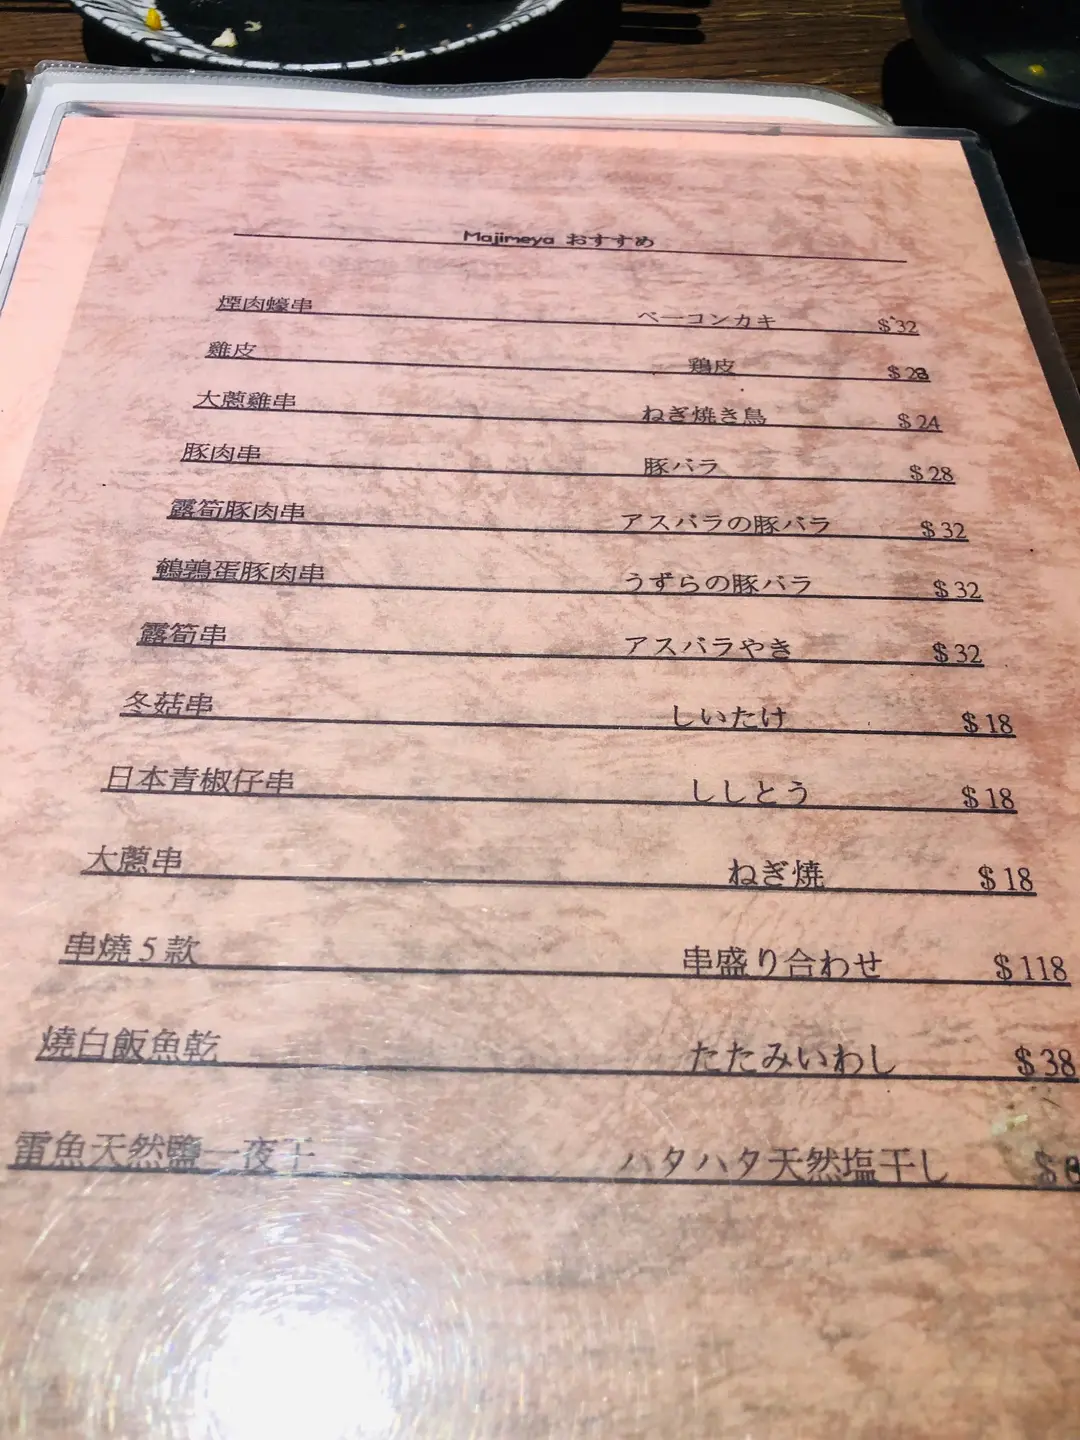 Majimeya おすすめ
煙肉蠔串 ベーコンカキ $32
雞皮 鶏皮
大蔥雞串 ねぎ焼き鳥 $24
豚肉串 豚バラ $28
露筍豚肉串 アスパラの豚バラ $32
鵪鶉蛋豚肉串 うずらの豚バラ $32
露筍串 アスパラやき $32
冬菇串 しいたけ $18
日本青椒仔串 ししとう $18
大蔥串 ねぎ焼 $18
串燒5款 串盛り合わせ $118
燒白飯魚乾 たたみいわし $38
雷魚天然鹽一夜干 ハタハタ天然塩干し